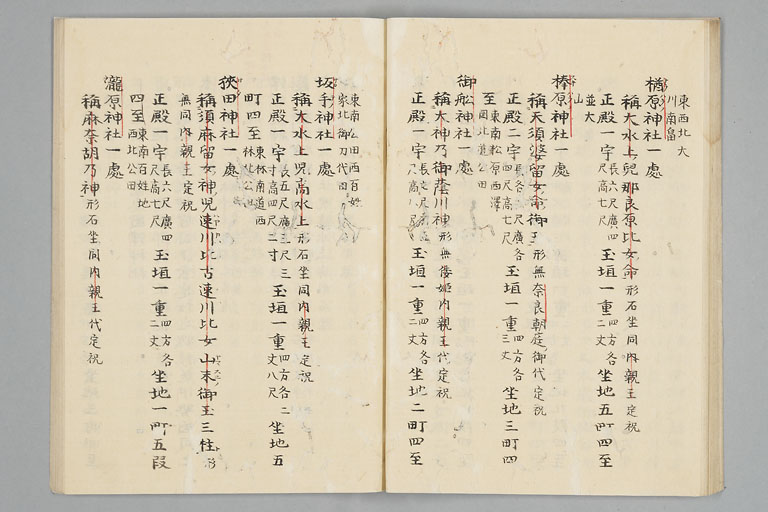 東西北大
川南畠
楢原神社一處
稱大水上兒那良原比女命形石坐同内親王定祝
正殿一宇長六尺廣四尺高七尺玉垣一重四方各二丈坐地五町四至
並大山
榛原神社一處
稱天須婆留女命御玉形無奈良朝庭御代定祝
正殿二宇長各六尺廣各四尺高七尺玉垣一重四方各三丈坐地三町四
至東南松原西澤田北道公田
御舩神社一處
稱大神乃御蔭川神形無倭姫内親王代定祝
正殿一宇玉垣一重四方各二丈坐地二町四至
東南公田西百姓
家北御刀代田
坂手神社一處
稱大水上兒高水上形石坐同内親王定祝
正殿一宇長五尺廣三尺三寸高四尺二寸玉垣一重四方各二丈八尺坐地五
町四至東林南道西林北公田
狹田神社一處
稱須麻留女神兒速川比古速川比女山末御玉三柱形
無同内親王定祝
正殿一宇長六尺廣四尺高七尺玉垣一重四方各二丈坐地一町五段
四至東南百姓地西北公田
瀧原神社一處
稱麻奈胡乃神形石坐同内親王代定祝